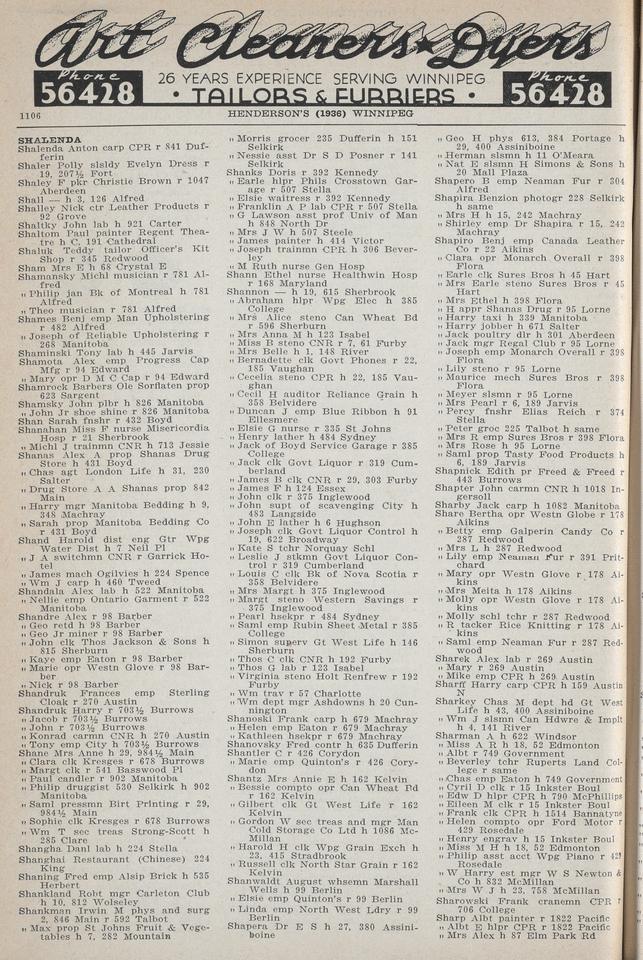 Art Cleaners & Dyers
Phone
56428
26 YEARS EXPERIENCE SERVING WINNIPEG
• TAILORS & FURRIERS •
Phone
56428
1106
HENDERSON'S (1936) WINNIPEG
SHALENDA
Shalenda Anton carp CPR r 841 Duf-
ferin
Shaler Polly slsldy Evelyn Dress r
19, 207½ Fort
Shaley F pkr Christie Brown r 1047
Aberdeen
Shall — h 3, 126 Alfred
Shalley Nick ctr Leather Products r
92 Grove
Shaltky John lab h 921 Carter
Shaltom Paul painter Regent Thea-
tre h C, 191 Cathedral
Shaluk Teddy tailor Officer's Kit
Shop r 345 Redwood
Sham Mrs E h 68 Crystal E
Shamansky Michl musician r 781 Al-
fred
" Philip jan Bk of Montreal h 781
Alfred
" Theo musician r 781 Alfred
Shames Benj emp Man Upholstering
r 482 Alfred
" Joseph of Reliable Upholstering r
268 Manitoba
Shaminski Tony lab h 445 Jarvis
Shamota Alex emp Progress Cap
Mfg r 94 Edward
" Mary opr D M C Cap r 94 Edward
Shamrock Barbers Ole Sorflaten prop
623 Sargent
Shamsky John plbr h 826 Manitoba
" John Jr shoe shine r 826 Manitoba
Shan Sarah fnshr r 432 Boyd
Shanahan Miss F nurse Misericordia
Hosp r 21 Sherbrook
" Michl J trainmn CNR h 713 Jessie
Shanas Alex A prop Shanas Drug
Store h 431 Boyd
" Chas agt London Life h 31, 230
Salter
" Drug Store A A Shanas prop 842
Main
" Harry mgr Manitoba Bedding h 9,
348 Machray
" Sarah prop Manitoba Bedding Co
r 431 Boyd
Shand Harold dist eng Gtr Wpg
Water Dist h 7 Neil Pl
" J A switchmn CNR r Garrick Ho-
tel
" James mach Ogilvies h 224 Spence
" Wm J carp h 460 Tweed
Shandala Alex lab h 522 Manitoba
" Nellie emp Ontario Garment r 522
Manitoba
Shandre Alex r 98 Barber
" Geo retd h 98 Barber
" Geo Jr miner r 98 Barber
" John clk Thos Jackson & Sons h
815 Sherburn
" Kaye emp Eaton r 98 Barber
" Marie opr Westn Glove r 98 Bar-
ber
" Nick r 98 Barber
Shandruk Frances emp Sterling
Cloak r 270 Austin
Shandruk Harry r 703½ Burrows
" Jacob r 703½ Burrows
" John r 703½ Burrows
" Konrad carmn CNR h 270 Austin
" Tony emp City h 703½ Burrows
Shane Mrs Anne h 29, 984½ Main
" Clara clk Kresges r 678 Burrows
" Margt clk r 541 Basswood Pl
" Paul candler r 902 Manitoba
" Philip druggist 530 Selkirk h 902
Manitoba
" Saml pressmn Birt Printing r 29,
984½ Main
" Sophie clk Kresges r 678 Burrows
" Wm T sec treas Strong-Scott h
285 Clare
Shangha Danl lab h 224 Stella
Shanghai Restaurant (Chinese) 224
King
Shaning Fred emp Alsip Brick h 535
Herbert
Shankland Robt mgr Carleton Club
h 10, 812 Wolseley
Shankman Irwin M phys and surg
2, 846 Main r 592 Talbot
" Max prop St Johns Fruit & Vege-
tables h 7, 282 Mountain
" Morris grocer 235 Dufferin h 151
Selkirk
" Nessie asst Dr S D Posner r 141
Selkirk
Shanks Doris r 392 Kennedy
" Earle hlpr Phils Crosstown Gar-
age r 507 Stella
" Elsie waitress r 392 Kennedy
" Franklin A P lab CPR r 507 Stella
" G Lawson asst prof Univ of Man
h 848 North Dr
" Mrs J W h 507 Steele
" James painter h 414 Victor
" Joseph trainmn CPR h 306 Bever-
ley
" M Ruth nurse Gen Hosp
Shann Ethel nurse Healthwin Hosp
r 168 Maryland
Shannon — h 19, 615 Sherbrook
" Abraham hlpr Wpg Elec h 385
College
" Mrs Alice steno Can Wheat Bd
r 596 Sherburn
" Mrs Anna M h 123 Isabel
" Miss B steno CNR r 7, 61 Furby
" Mrs Belle h 1, 148 River
" Bernadette clk Govt Phones r 22,
185 Vaughan
" Cecelia steno CPR h 22, 185 Vau-
ghan
" Cecil H auditor Reliance Grain h
358 Belvidere
" Duncan J emp Blue Ribbon h 91
Ellesmere
" Elsie G nurse r 335 St Johns
" Henry lather h 484 Sydney
" Jack of Boyd Service Garage r 385
College
" Jack clk Govt Liquor r 319 Cum-
berland
" James B clk CNR r 29, 303 Furby
" James F h 124 Essex
" John clk r 375 Inglewood
" John supt of scavenging City h
483 Langside
" John E lather h 6 Hughson
" Joseph clk Govt Liquor Control h
19, 622 Broadway
" Kate S tchr Norquay Schl
" Leslie J stkmn Govt Liquor Con-
trol r 319 Cumberland
" Louis C clk Bk of Nova Scotia r
358 Belvidere
" Mrs Margt h 375 Inglewood
" Margt steno Western Savings r
375 Inglewood
" Pearl hsekpr r 484 Sydney
" Saml emp Rubin Sheet Metal r 385
College
" Simon superv Gt West Life h 146
Sherburn
" Thos C clk CNR h 192 Furby
" Thos G lab r 123 Isabel
" Virginia steno Holt Renfrew r 192
Furby
" Wm trav r 57 Charlotte
" Wm dept mgr Ashdowns h 20 Cun-
nington
Shanoski Frank carp h 679 Machray
" Helen emp Eaton r 679 Machray
" Kathleen hsekpr r 679 Machray
Shanovsky Fred contr h 635 Dufferin
Shantler C r 426 Corydon
" Marie emp Quinton's r 426 Cory-
don
Shantz Mrs Annie E h 162 Kelvin
" Bessie compto opr Can Wheat Bd
r 162 Kelvin
" Gilbert clk Gt West Life r 162
Kelvin
" Gordon W sec treas and mgr Man
Cold Storage Co Ltd h 1086 Mc-
Millan
" Harold H clk Wpg Grain Exch h
23, 415 Stradbrook
" Russell clk North Star Grain r 162
Kelvin
Shanwaldt August whsemn Marshall
Wells h 99 Berlin
" Elsie emp Quinton's r 99 Berlin
" Linda emp North West Ldry r 99
Berlin
Shapera Dr E S h 27, 380 Assini-
boine
" Geo H phys 613, 384 Portage h
29, 400 Assiniboine
" Herman slsmn h 11 O'Meara
" Nat E slsmn H Simons & Sons h
20 Mall Plaza
Shapero B emp Neaman Fur r 304
Alfred
Shapira Benzion photogr 228 Selkirk
h same
" Mrs H h 15, 242 Machray
" Shirley emp Dr Shapira r 15, 242
Machray
Shapiro Benj emp Canada Leather
Co r 22 Aikins
" Clara opr Monarch Overall r 398
Flora
" Earle clk Sures Bros h 45 Hart
" Mrs Earle steno Sures Bros r 45
Hart
" Mrs Ethel h 398 Flora
" H appr Shanas Drug r 95 Lorne
" Harry taxi h 339 Manitoba
" Harry jobber h 671 Salter
" Jack poultry dlr h 301 Aberdeen
" Jack mgr Regal Club r 95 Lorne
" Joseph emp Monarch Overall r 398
Flora
" Lily steno r 95 Lorne
" Maurice mech Sures Bros r 398
Flora
" Meyer slsmn r 95 Lorne
" Mrs Pearl r 6, 189 Jarvis
" Percy fnshr Elias Reich r 374
Stella
" Peter groc 225 Talbot h same
" Mrs R emp Sures Bros r 398 Flora
" Mrs Rose h 95 Lorne
" Saml prop Tasty Food Products h
6, 189 Jarvis
Shapnick Edith pr Freed & Freed r
443 Burrows
Shapter John carmn CNR h 1018 In-
gersoll
Sharby Jack carp h 1082 Manitoba
Share Bertha opr Westn Globe r 178
Aikins
" Betty emp Galperin Candy Co r
287 Redwood
" Mrs L h 287 Redwood
" Lily emp Neaman Fur r 391 Prit-
chard
" Mary opr Westn Glove r 178 Ai-
kins
" Mrs Meita h 178 Aikins
" Molly opr Westn Glove r 178 Ai-
kins
" Molly schl tchr r 287 Redwood
" R tacker Rice Knitting r 178 Ai-
kins
" Saml emp Neaman Fur r 287 Red-
wood
Sharek Alex lab r 269 Austin
" Mary r 269 Austin
" Mike emp CPR h 269 Austin
Sharff Harry carp CPR h 159 Austin
N
Sharkey Chas M dept hd Gt West
Life h 43, 400 Assiniboine
" Wm J slsmn Can Hdwre & Implt
h 4, 141 River
Sharman A h 622 Windsor
" Miss A R h 18, 52 Edmonton
" Albt r 749 Government
" Beverley tchr Ruperts Land Col-
lege r same
" Chas emp Eaton h 749 Government
" Cyril D clk r 15 Inkster Boul
" Edw D hlpr CPR h 790 McPhillips
" Eileen M clk r 15 Inkster Boul
" Frank clk CPR h 1514 Bannatyne
" Helen compto opr Ford Motor r
429 Rosedale
" Henry engrav h 15 Inkster Boul
" Miss M H h 18, 52 Edmonton
" Philip asst acct Wpg Piano r 429
Rosedale
" W Harry est mgr W S Newton &
Co h 832 McMillan
" Mrs W J h 23, 758 McMillan
Sharowski Frank cranemn CPR r
706 College
Sharp Albt painter r 1822 Pacific
" Albt E hlpr CPR r 1822 Pacific
" Mrs Alex h 87 Elm Park Rd